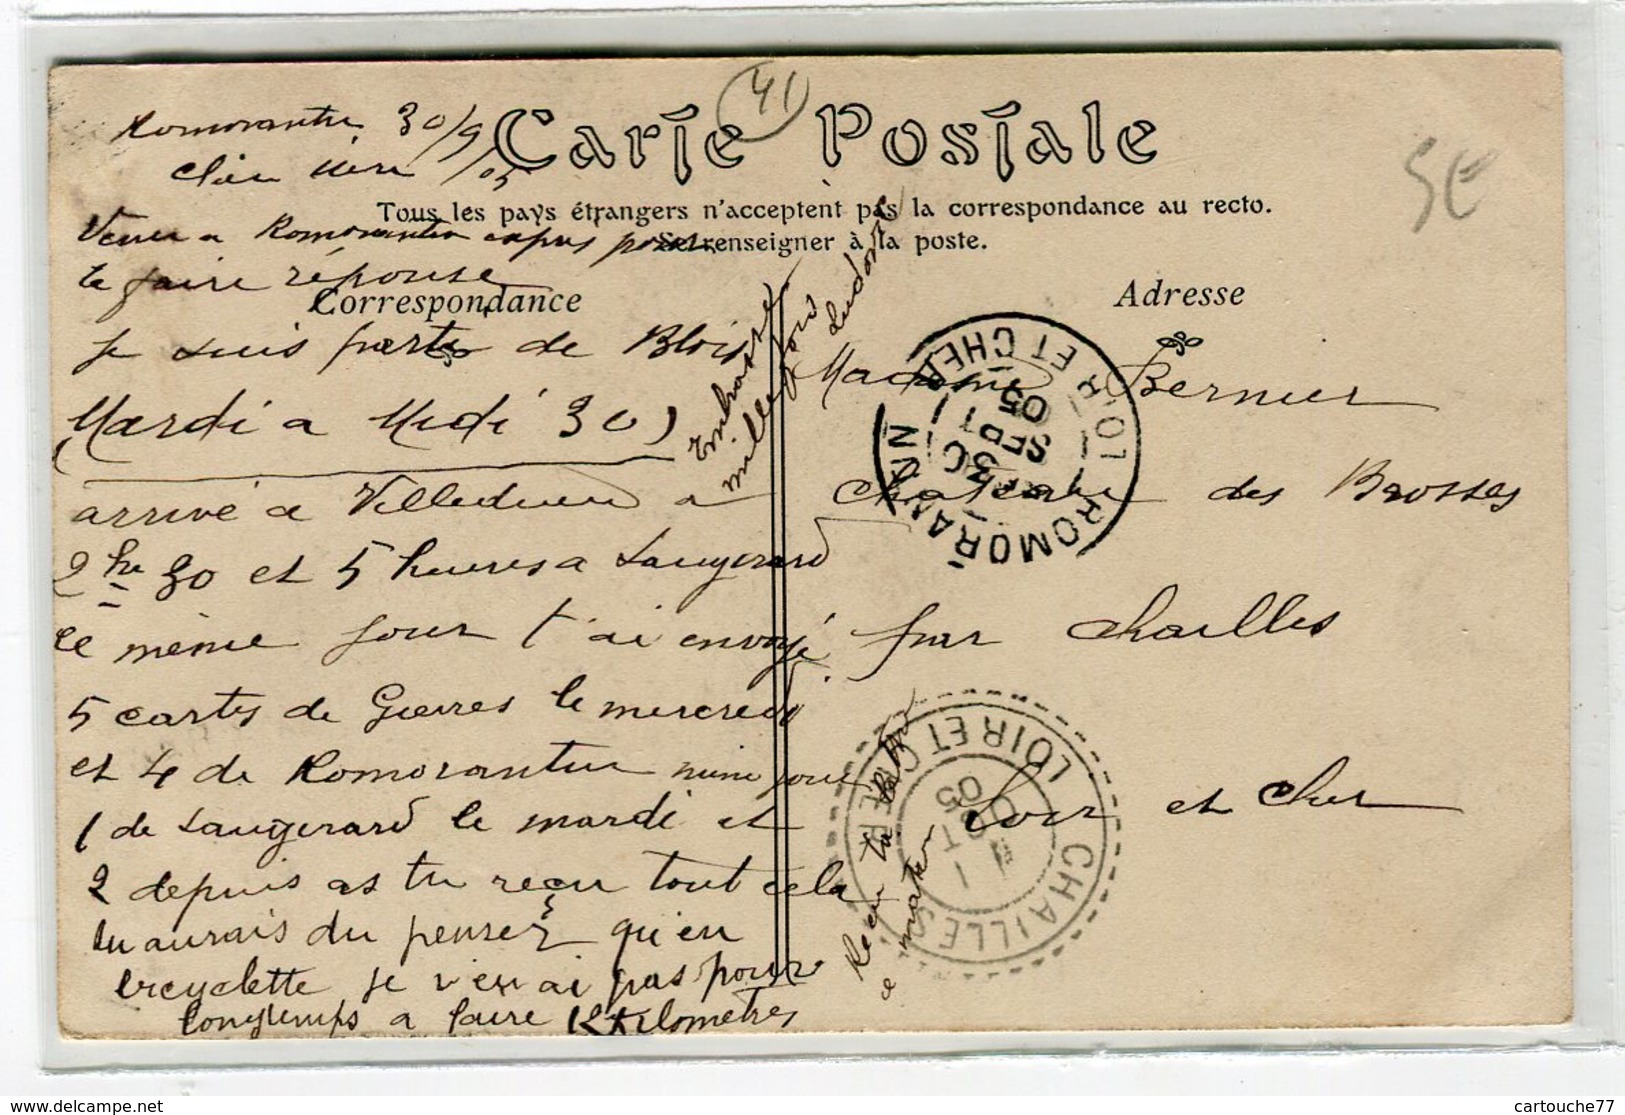 41
Carte Postale
5€
Tous les pays étrangers n'acceptent pas la correspondance au recto.
Se renseigner à la poste.
Correspondance
Adresse
Romorantin 30/9/05
Venu a Romorantin expres pour
te faire réponse
je suis parti de Blois
Mardi a Midi 30
arrivé a Villedieu a
2 hre 30 et 5 heures a Laugerard
le même jour t'ai envoyé
5 cartes de Gievres le mercredi
et 4 de Romorantin même jour
1 de Laugerard le mardi et
2 depuis as tu recu tout cela
tu aurais du penser qu'en
bicyclette je n'en ai pas pour
longtemps a faire 12 kilometres
Embrasse
mille fois
Recu ta lettre
ce matin
Madame Bernier
Chateau des Brosses
par Chailles
Loir et Cher
ROMORANTIN
LOIR ET CHER
30
SEPT
05
CHAILLES
LOIR ET CHER
1
OCT
05
www.delcampe.net
cartouche77